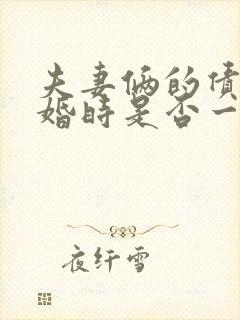 夫妻俩的债
婚时是否一
夜纤雪